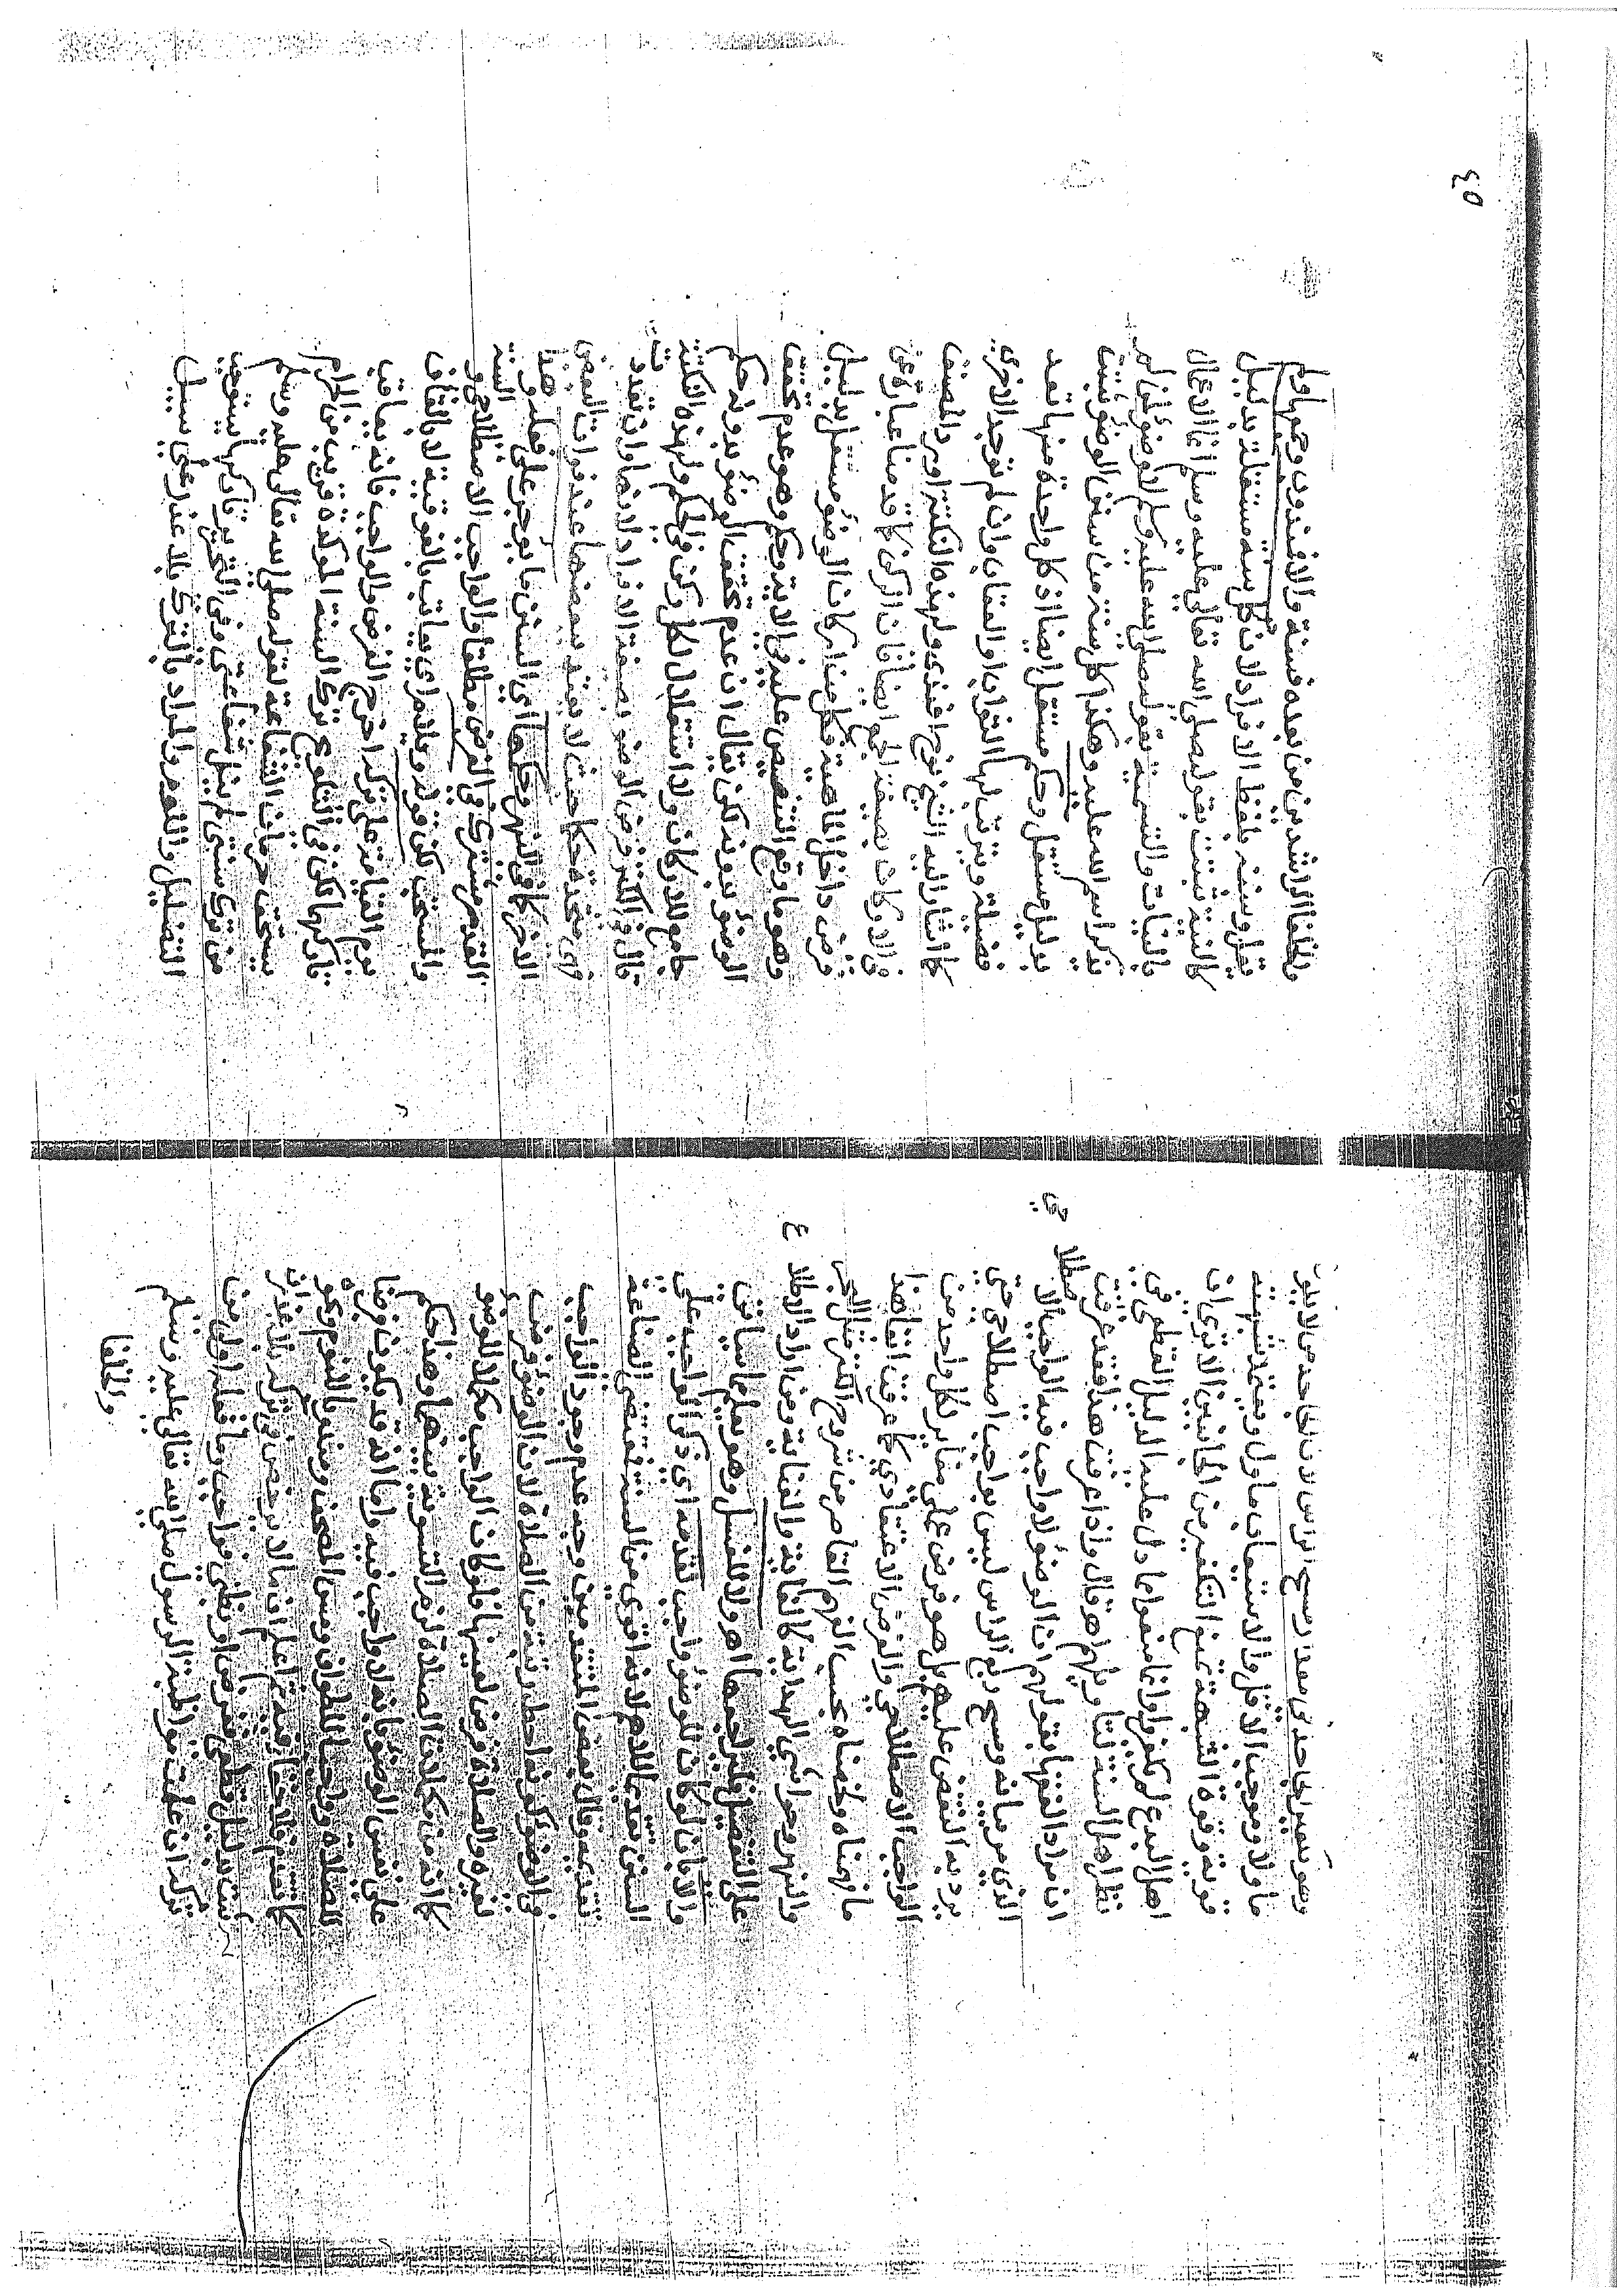 وهو يعتبر الجاحد في مقدار مسح الراس لان الجاحد من لا يكون
ماولا وموجب الاقل والاستيعاب ماول ويعتمد شبهته
قوية وقوة الشبهة تمنع التكفير من الجانبين الا ترى ان
اهل البدع لم يكفروا بما منعوا مما دل عليه الدليل القطعي في
نظر اهل السنة لتاويلهم اهـ قال واذا عرفت هذا فقد عرفت
ان مراد الفقها بقولهم ان الوضؤ لا واجب فيه الواجب الا
صطلا
الذي مر بيانه ومسح ربع الراس ليس بواجب اصطلاحي حتى
يرد به النقض عليهم بل هو فرض عملي مغاير لكل واحد من
الواجب الاصطلاحي والفرض الاعتقادي كما عرفت انفا هذا
ما فهمناه ولخصناه بحسب الفهم القاصر من شروح الكنز مثل البحر
والنهر وحواشي الهداية كالغاية والعناية ومن اراد الاطلا
ع
على التفصيل فليراجعها اهـ ولا للغسل وهو يعلم بما سياتي
والا بان لو كان للوضؤ واجب لقدمه اي ذكر الواجب على
السنن تقديما للاهم لانه اقوى من السنة فتقتضي الصناعة
تقديمه وقال بعض المتقدمين وجه عدم وجود الواجب
في الوضؤ كونه احط رتبة من الصلاة لان الوضؤ فرض
لغيره والصلاة فرض لعينها فلو كان الواجب مكملا للوضو
كما انه من مكملات الصلاة لزم التسوية بينهما وهذا حكم
على نفس الوضو بانه لا واجب فيه واما انه قد يكون فرضا
للصلاة وواجبا للطواف ومس المصحف ومندوبا للنوم ونحوه
كما تقدم فلا خفا فيه ثم اعلم ان ما لا يرخص في تركه بلا عذر ان
ثبت بدليل قطعي ففرض او ظني فواجب وما فعله اولى من
تركه ان علمت مواظبة الرسول صلى الله تعالى عليه وسلم
والخلفا
والخلفا الراشدين من بعده فسنة والا فمندوب وجمعها ولم
يقل وسنته بلفظ الافراد لان كل سنة مستقلة بدليل
كالنية تثبت بقوله صلى الله تعالى عليه وسلم انما الاعمال
بالنيات والتسمية بقوله صلى الله عليه وسلم لا وضؤ لمن لم
يذكر اسم الله عليه وهكذا كل سنة من سنن الوضؤ تثبت
بدليل مستقل وحكم مستقل ايضا اذ كل واحدة منها تعد
فضيلة ويترتب لها الثواب او العقاب وان لم توجد الاخرى
كما اشار اليه الشيخ نوح افندي ولهذه النكتة اورد المصنف
في الاركان بصيغة الجمع ايضا فان الركن كما قدمنا عبارة عن
فرض داخل الماهية فكل من اركان الوضؤ مستقل بدليل
وهو ما وقع التنصيص عليه في الاية وحكم وهو عدم تحقق
الوضؤ بدونه لكن يقال ان عدم تحقق الوضؤ بدونه حكم
جامع للاركان ولا استقلال لكل ركن في الحكم ولهذه النكتة
قال في الكنز فرض الوضؤ بصيغة الافراد لانها وان تعددت
فهي متحدة حكما حيث لا يعتد ببعضها عند فوات البعض
الاخر كما في النهر وحكمها اي السنن ما يوجر على فعله وهذا
القدر مشترك في الفرض مطلقا والواجب الاصطلاحي والسنة
والمستحب لكن قوله ويلام اي يعاتب بالفوقية لا بالقاف
يوم القيامة على تركه اخرج الفرض والواجب فانه يعاقب
تاركهما لكن في التلويح ترك السنة الموكدة قريب من الحرام
يستحق حرمان الشفاعة لقوله صلى الله تعالى عليه وسلم
من ترك سنتي لم ينل شفاعتي وفي التحرير تاركها يستوجب
التضليل واللوم والمراد بالترك بلا عذر على سبيل